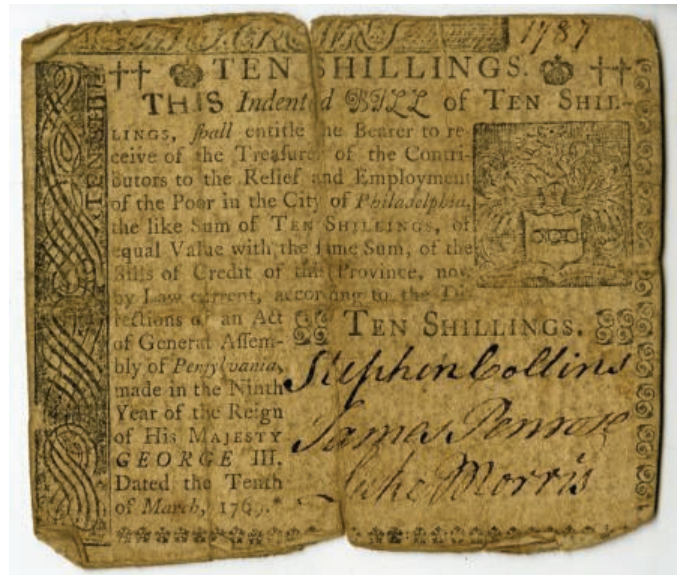 1787
TEN SHILLINGS.
TEN SHIL
THIS Indented BILL of TEN SHIL-
LINGS, ſhall entitle the Bearer to re-
ceive of the Treaſurer of the Contri-
butors to the Relief and Employment
of the Poor in the City of Philadelphia,
the like Sum of TEN SHILLINGS, of
equal Value with the ſame Sum, of the
Bills of Credit of this Province, now
by Law current, according to the Di-
rections of an Act
of General Aſſem-
bly of Penſylvania,
made in the Ninth
Year of the Reign
of His MAJESTY
GEORGE III.
Dated the Tenth
of March, 1769.
TEN SHILLINGS.
Stephen Collins
James Penrose
Luke Morris